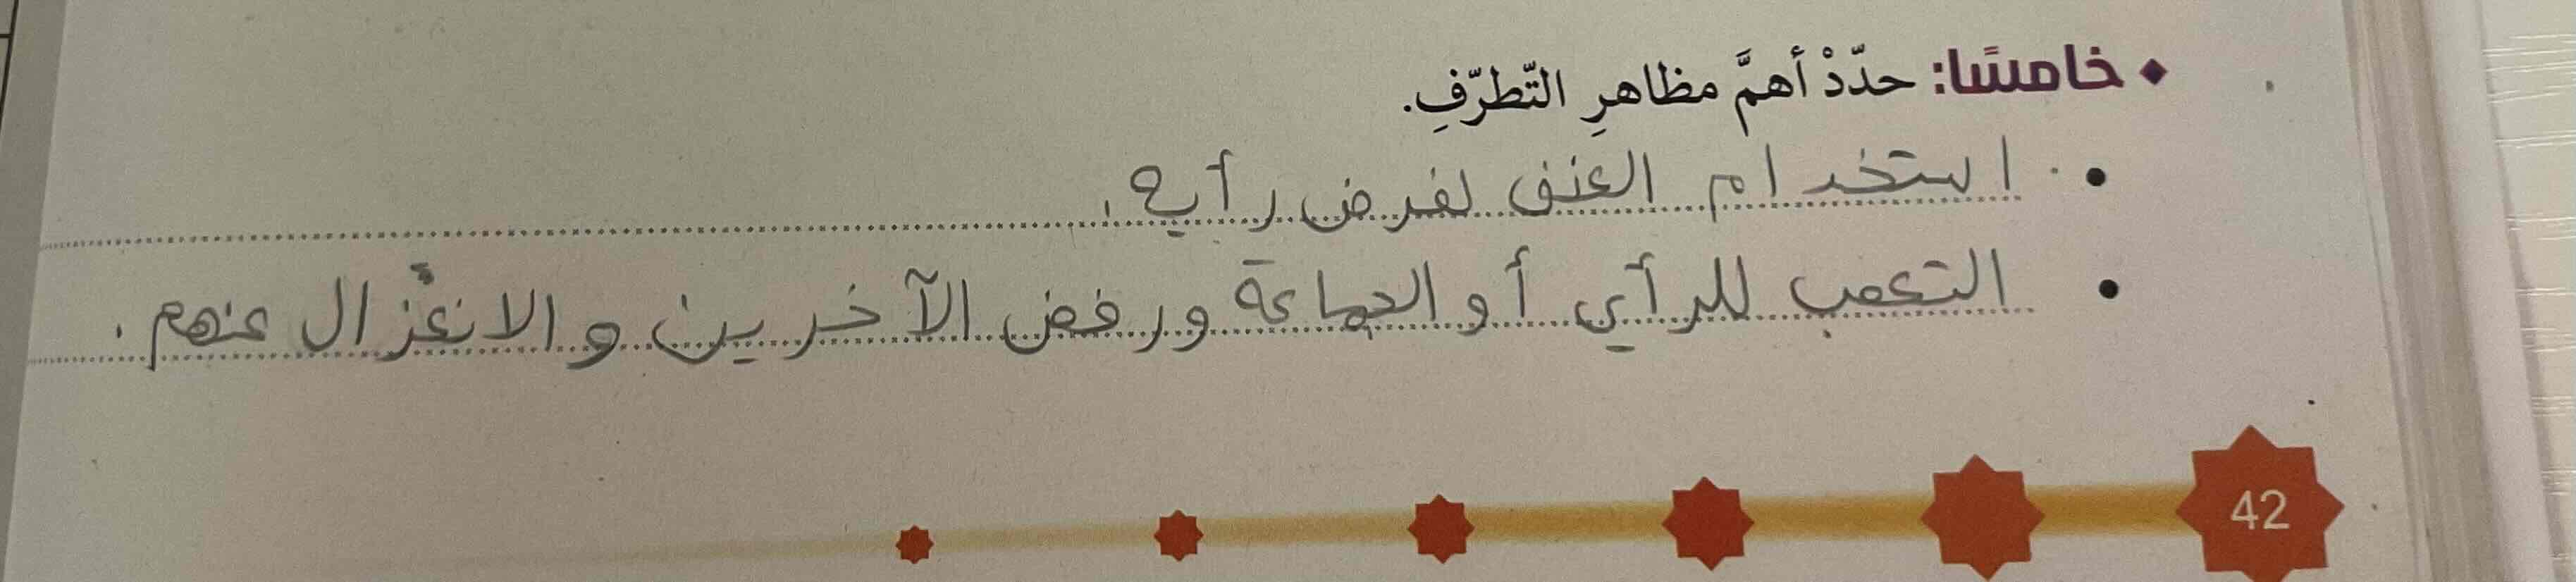 خامسًا: حدّدْ أهمَّ مظاهرِ التّطرّفِ.
• استخدام العنف لفرض رأيه.
• التعصب للرأي أو الجماعة ورفض الآخرين والانعزال عنهم.
42